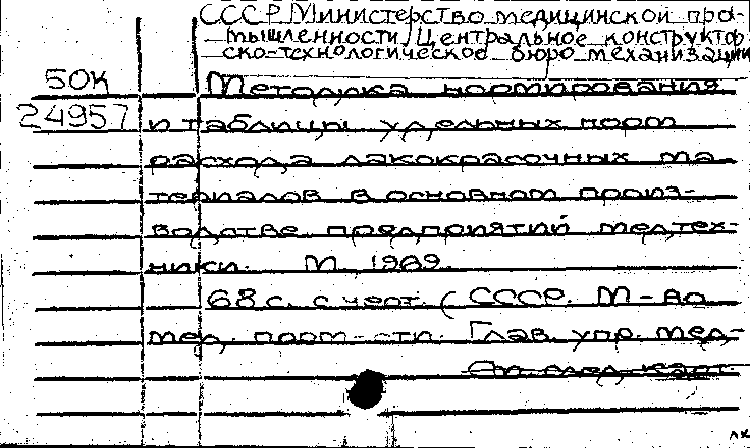 СССР. Министерство медицинской про-
мышленности. Центральное конструктор-
ско-технологическое бюро механизации
50К
Методика нормирования
24957
и таблицы удельных норм
расхода лакокрасочных ма
териалов в основном произ-
водстве предприятий медтех-
ники. М. 1969.
68 с. с черт. ( СССР. М-во
мед. пром-сти. Глав. упр. мед.-
См. след. карт.